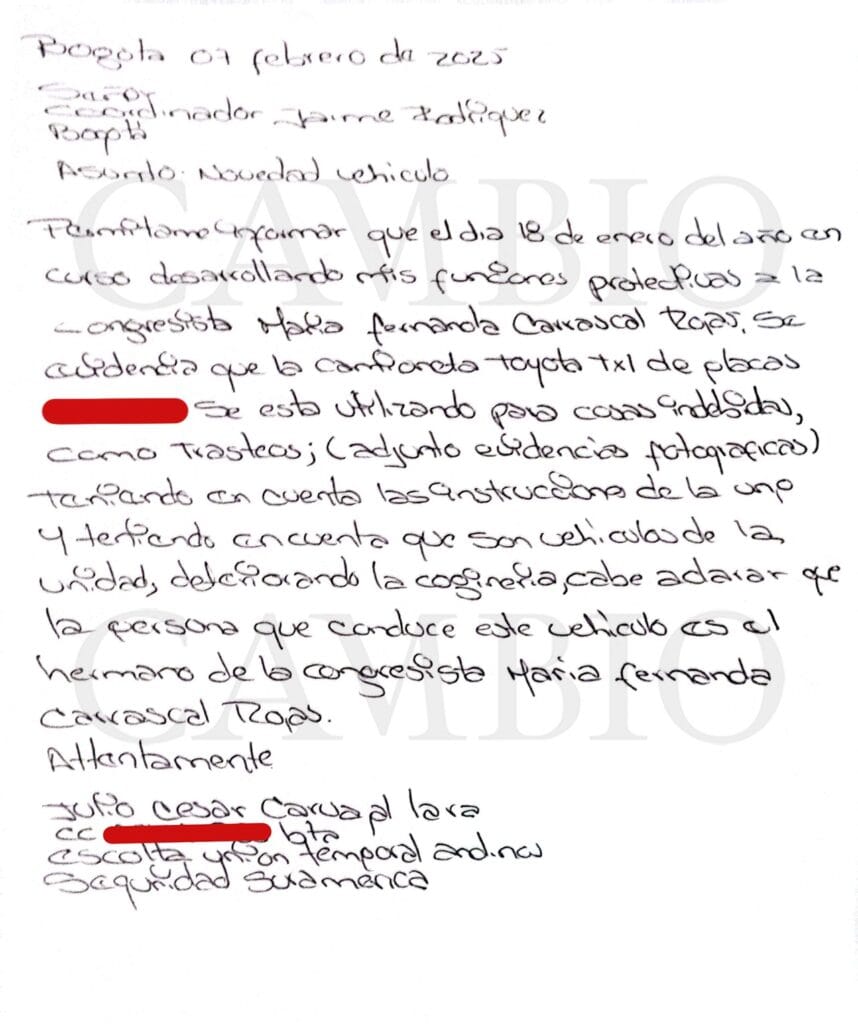 Bogota 07 febrero de 2025
Señor
Coordinador Jaime Rodriguez
Bogotá
Asunto: Novedad vehiculo
CAMBIO
Permitame informar que el dia 18 de enero del año en
curso desarrollando mis funciones protectivas a la
congresista Maria fernanda Carrascal Rojas, se
evidencia que la camioneta toyota txl de placas
se esta utilizando para cosas indebidas,
como Trasteos; (adjunto evidencias fotograficas)
teniando en cuenta las instrucciones de la unp
y teniendo en cuenta que son vehiculos de la
unidad, deteriorando la cogineria, cabe aclarar que
la persona que conduce este vehiculo es el
hermano de la congresista Maria fernanda
Carrascal Rojas.
CAMBIO
Attentamente
Julio Cesar Carvajal lara
cc bta
escolta union temporal andinas
Seguridad Suramerica